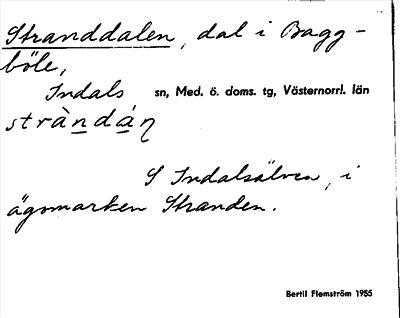 Stranddalen, dal i Bagg-
böle,
Indals sn, Med. ö. doms. tg, Västernorrl. län
stràndáŋ
S Indalsälven, i
ägomarken Stranden.
Bertil Flemström 1955